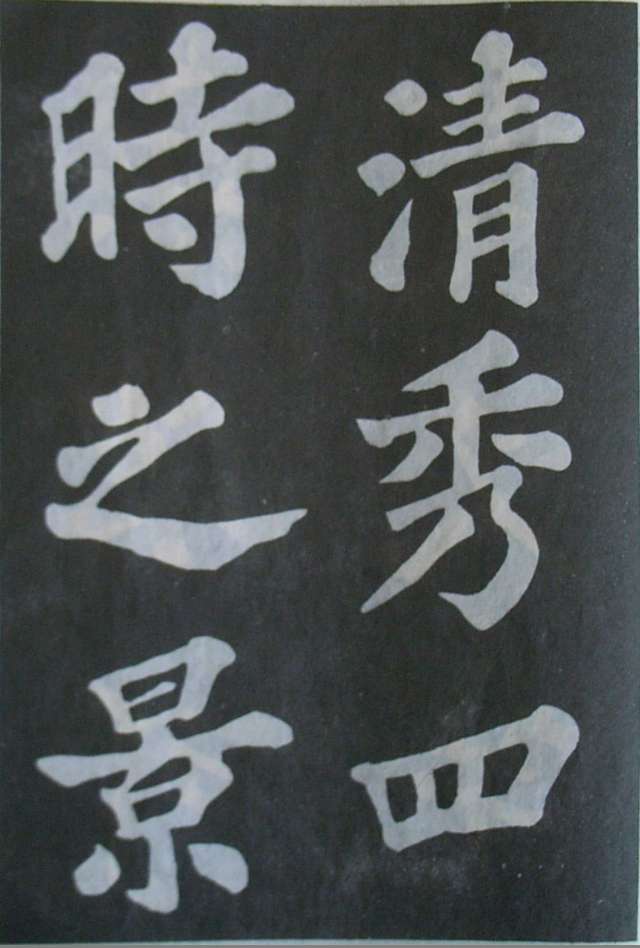 清秀四
時之景